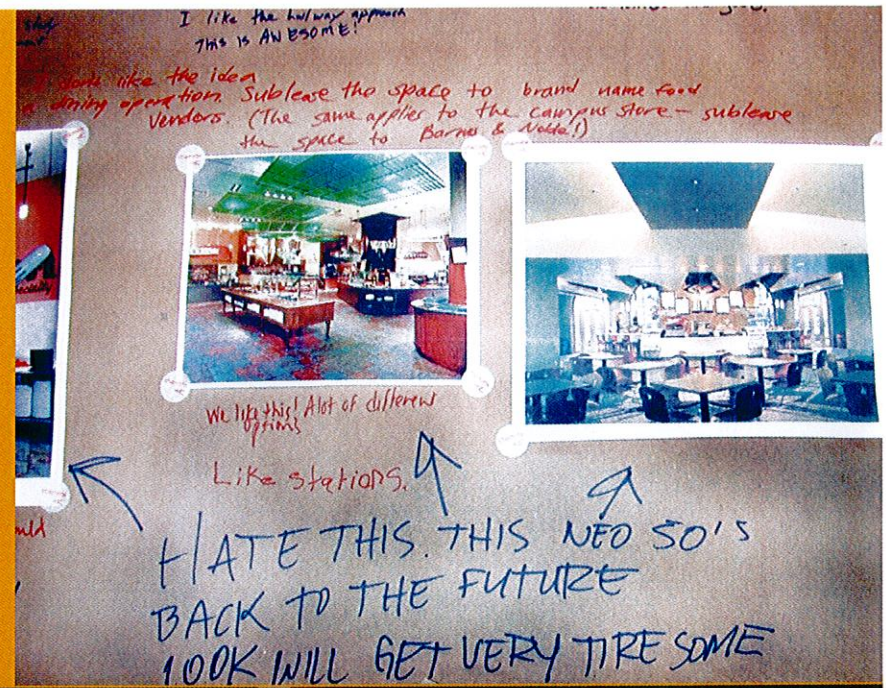 I like the halway approach
THIS IS AWESOME!
like the idea
dining operation. Sublease the space to brand name food
Venders. (The same applies to the campus store — sublease
the space to Barnes & Noble!)
We like this! Alot of different
options
Like stations.
HATE THIS. THIS NEO 50'S
BACK TO THE FUTURE
LOOK WILL GET VERY TIRESOME